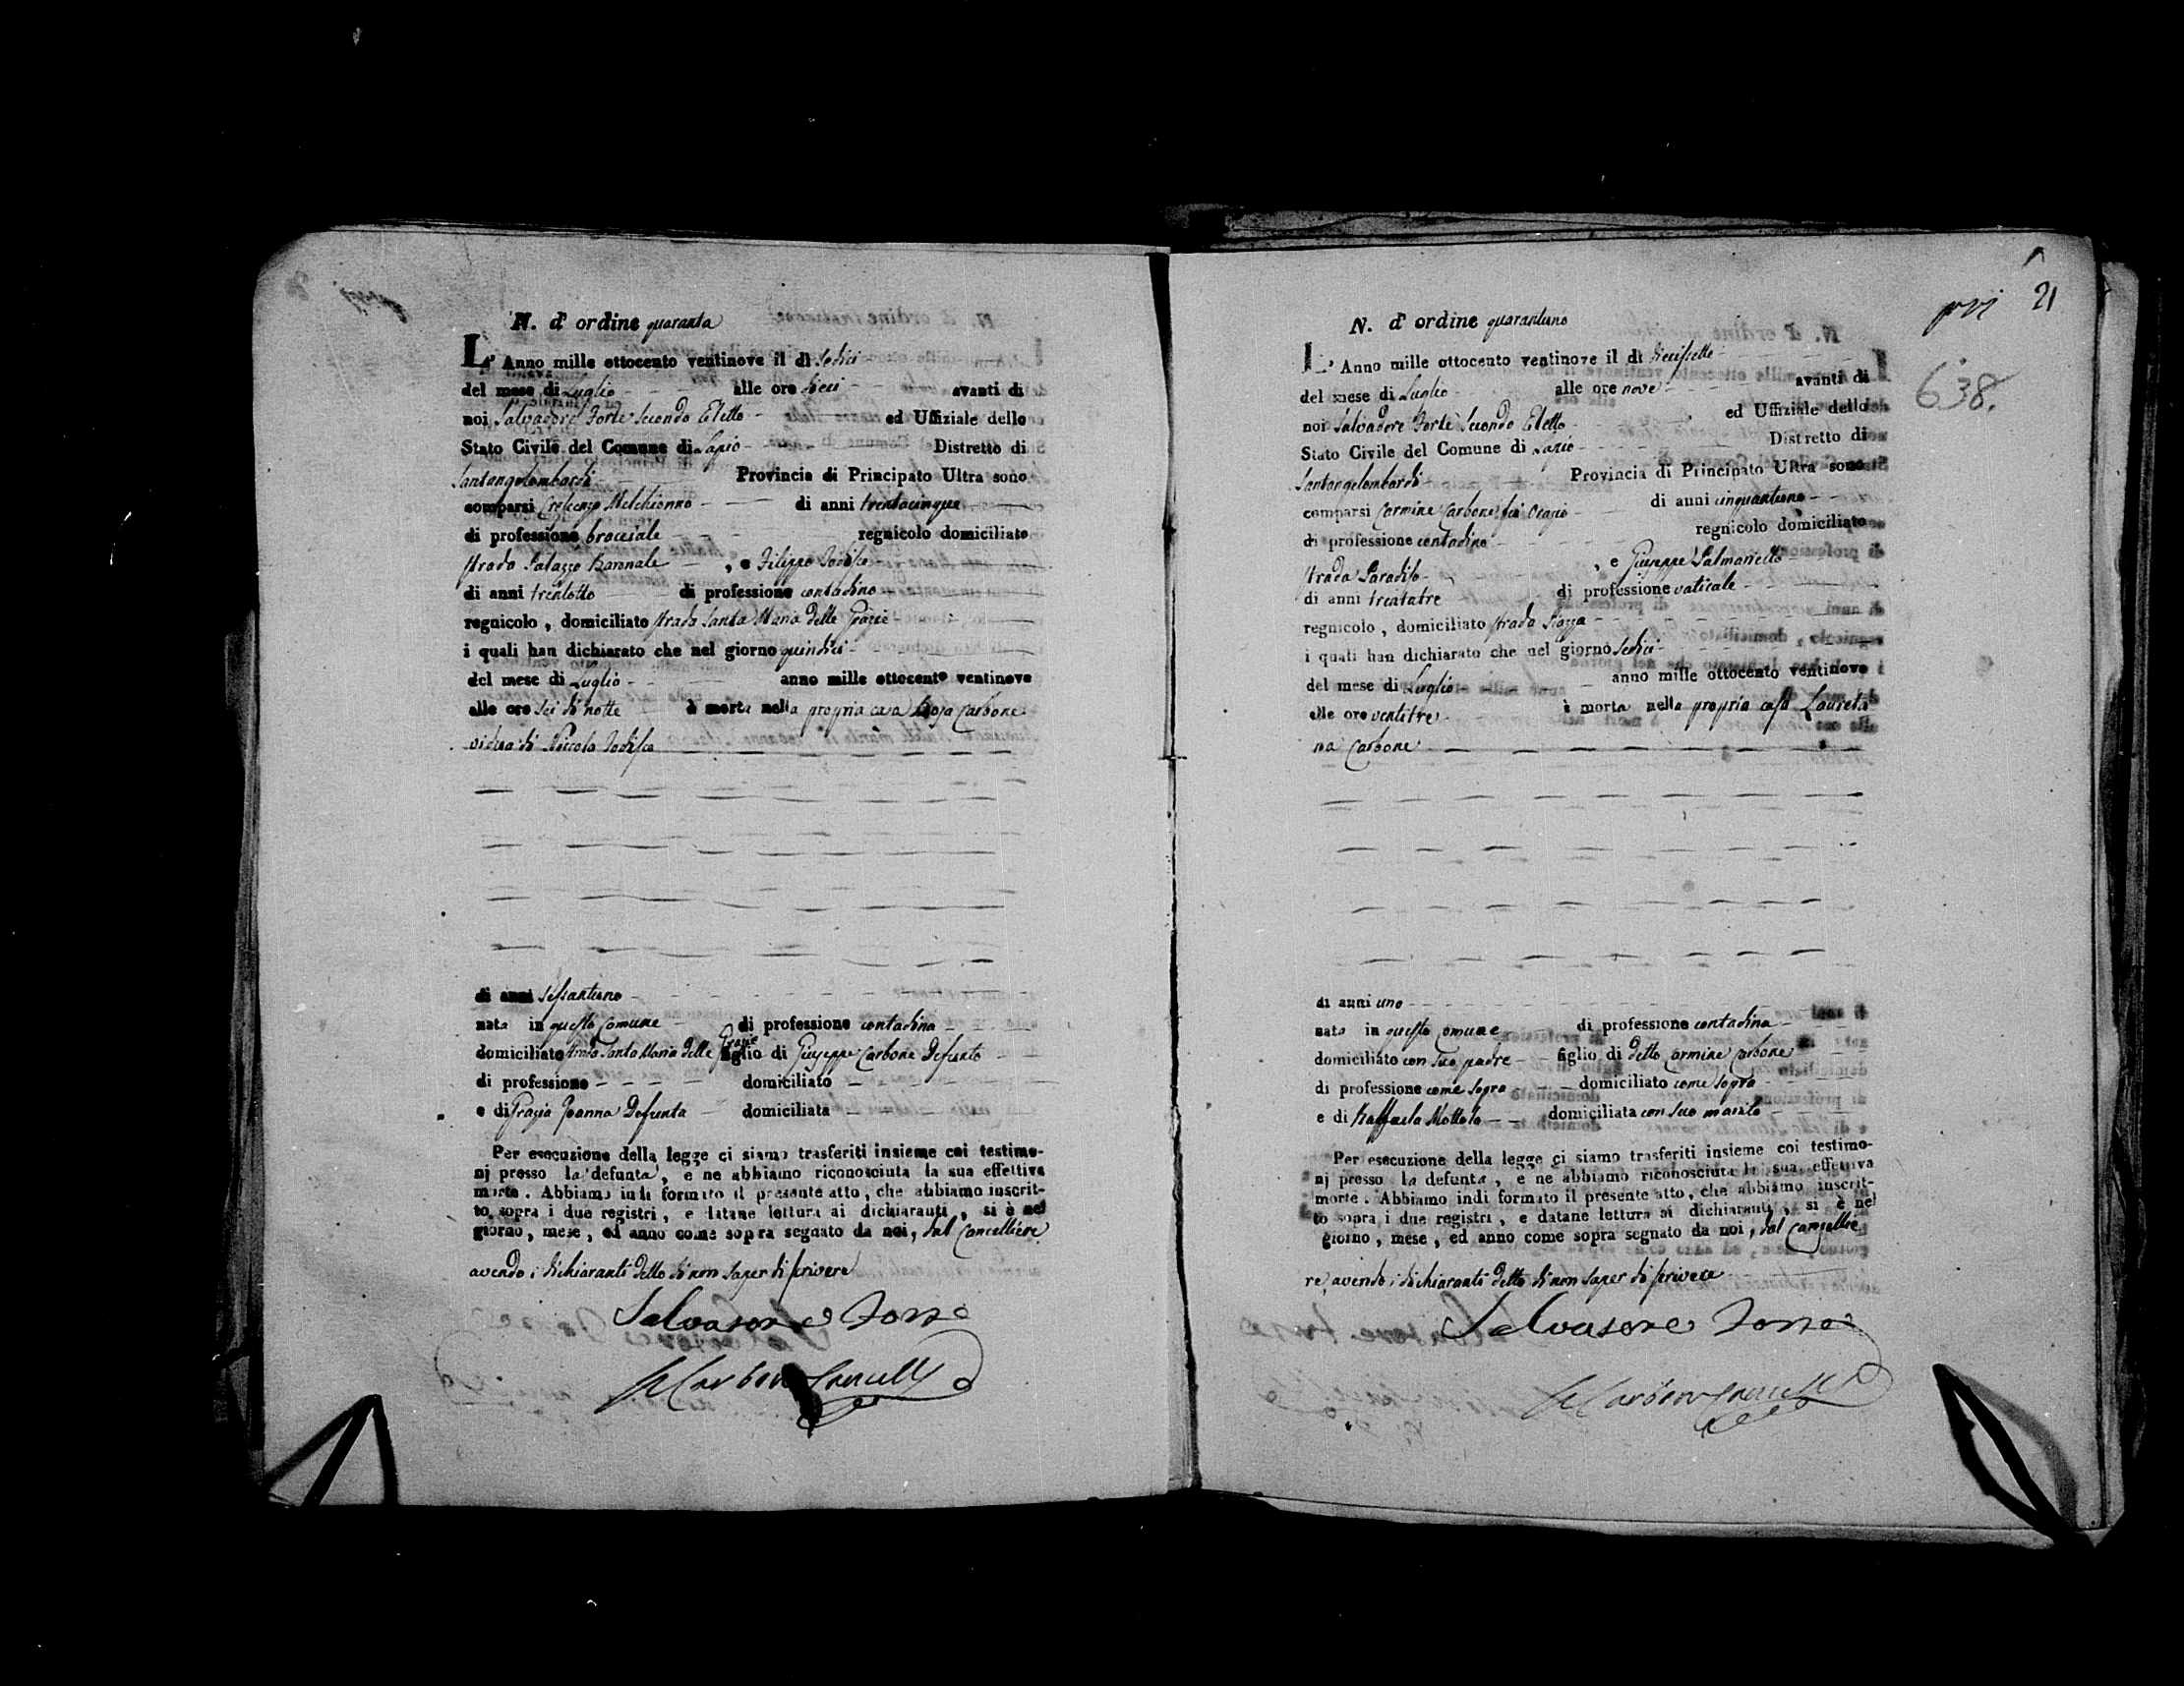 N. d' ordine quaranta
L' Anno mille ottocento ventinove il dì Sedici
del mese di Luglio alle ore dieci avanti di
noi Salvadore Forte Secondo Eletto ed Uffiziale dello
Stato Civile del Comune di Lapio Distretto di
Santangelombardi Provincia di Principato Ultra sono
comparsi Crescenzo Melchionno di anni trentacinque
di professione bracciale regnicolo domiciliato
strada Palazzo Baronale , e Filippo Jodisco
di anni trentotto di professione contadino
regnicolo , domiciliato strada Santa Maria delle Grazie
i quali han dichiarato che nel giorno quindici
del mese di Luglio anno mille ottocento ventinove
alle ore sei di notte è morta nella propria casa Carbone
vidua di Niccola Jodisco
di anni sessantuno
nata in questo Comune di professione contadina
domiciliato strada Santa Maria delle Grazie figlio di Giuseppe Carbone defunto
di professione domiciliato
e di Grazia defunta domiciliata
Per esecuzione della legge ci siamo trasferiti insieme coi testimo-
nj presso la defunta , e ne abbiamo riconosciuta la sua effettiva
morte . Abbiamo indi formato il presente atto , che abbiamo inscrit-
to sopra i due registri , e datane lettura ai dichiaranti , si è nel
giorno , mese , ed anno come sopra segnato da noi , dal Cancelliere
avendo i dichiaranti detto di non saper di scrivere
Salvatore Forte
Carbone Cancell
pri 21
638.
N. d' ordine quarantuno
L' Anno mille ottocento ventinove il dì diecissette
del mese di Luglio alle ore nove avanti di
noi Salvadore Forte Secondo Eletto ed Uffiziale dello
Stato Civile del Comune di Lapio Distretto di
Santangelombardi Provincia di Principato Ultra sono
comparsi Carmine Carbone fu Orazio di anni cinquantuno
di professione contadino regnicolo domiciliato
strada Paradiso , e Giuseppe Palmariello
di anni trentatre di professione vaticale
regnicolo , domiciliato strada Piazza
i quali han dichiarato che nel giorno sedici
del mese di Luglio anno mille ottocento ventinove
alle ore ventitre è morta nella propria casa Laureta
na Carbone
di anni uno
nata in questo Comune di professione contadina
domiciliato con suo padre figlio di detto Carmine Carbone
di professione come sopra domiciliato come sopra
e di Raffaela Mottola domiciliata con suo marito
Per esecuzione della legge ci siamo trasferiti insieme coi testimo-
nj presso la defunta , e ne abbiamo riconosciuta la sua effettiva
morte . Abbiamo indi formato il presente atto , che abbiamo inscrit-
to sopra i due registri , e datane lettura ai dichiaranti , si è nel
giorno , mese , ed anno come sopra segnato da noi , dal Cancellie
re, avendo i dichiaranti detto di non saper di scrivere
Salvatore Forte
Carbone Cancell